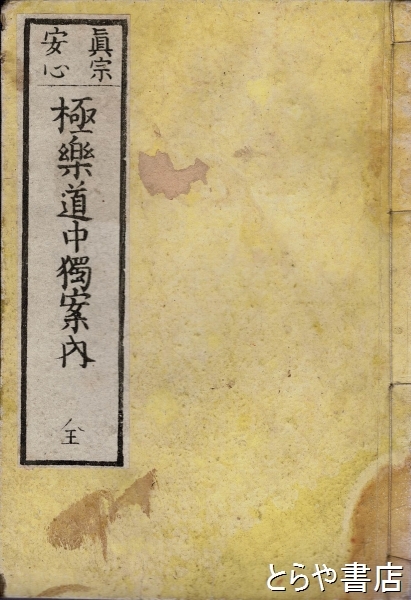 眞宗
安心
極樂道中獨案内
全
とらや書店